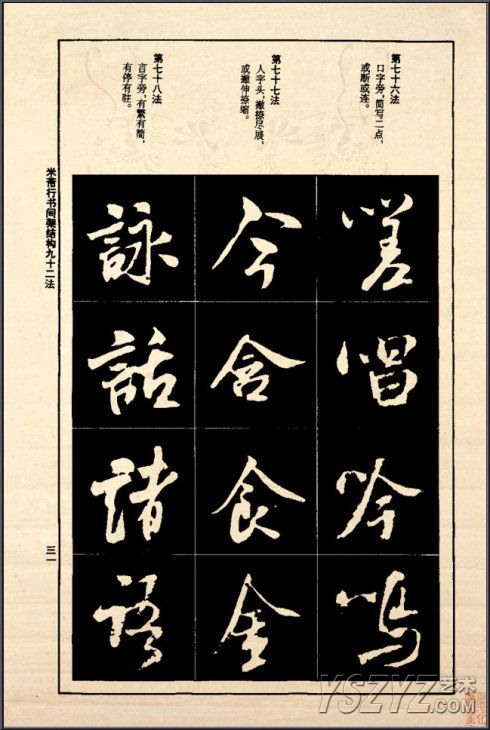 第七十六法
口字旁，简写二点，
或断或连。
第七十七法
人字头，撇捺尽展，
或撇伸捺缩。
第七十八法
言字旁，有繁有简，
有停有驻。
嗟唱吟鸣
今含食金
詠話諸语
米芾行书间架结构九十二法
三一
YSZYZ艺术
.COM